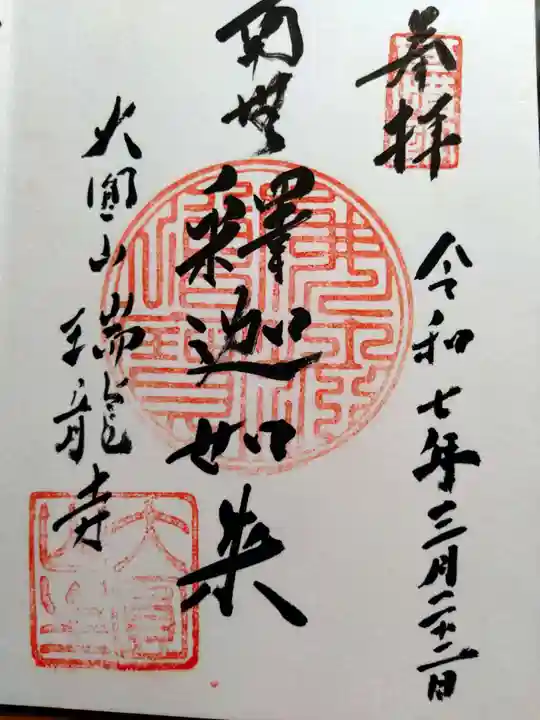 奉拝
令和七年三月二十二日
南無
釋迦如来
大圓山瑞龍寺